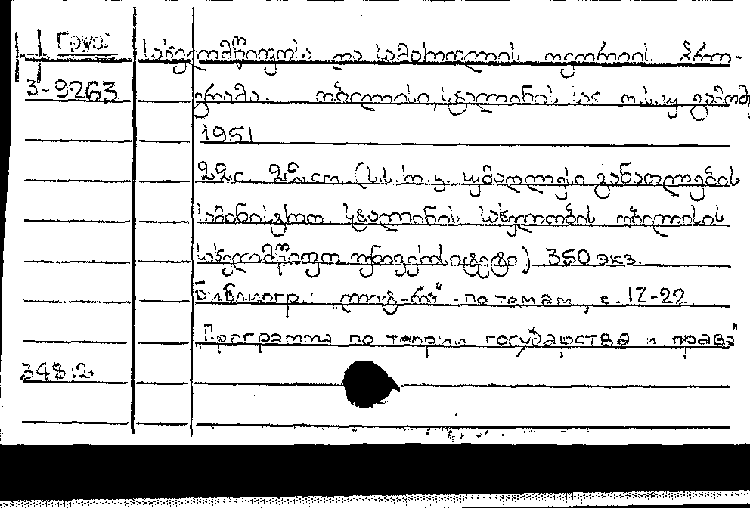 Груз. სახელმწიფოსა და სამართლის თეორიის პრო-
3-9263 გრამა. თბილისი, სტალინის სახ. თ.ს.უ. გამომ.
1951
22с. 22см. (ს.ს.რ.კ. უმაღლესი განათლების
სამინისტრო სტალინის სახელობის თბილისის
სახელმწიფო უნივერსიტეტი) 350 экз.
Библиогр.: " - по темам, с. 17-22
"Программа по теории государства и права"
348:2